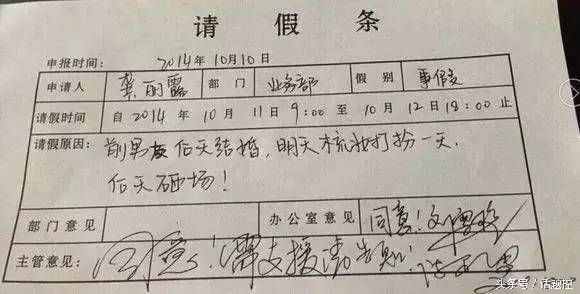 请假条
申报时间： 2014年10月10日
申请人 龚丽露 部门 业务部 假别 事假
请假时间 自2014年10月11日9:00至10月12日18:00止
请假原因：前男友后天结婚，明天梳妆打扮一天，
后天砸场！
部门意见 办公室意见 同意！
主管意见： 同意！需支援请告知！
头条号 / 话趣图